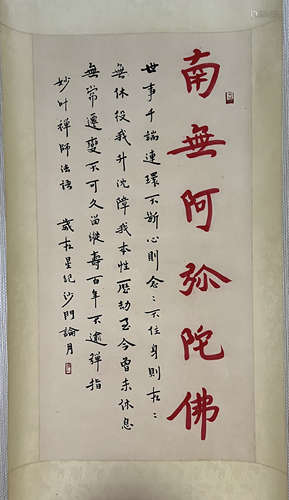 南無阿弥陀佛
世事千端連環不斷心則念：不住身則在：
無休役我升沈障我本性歷劫至今曾未休息
無常遷變不可久留縱壽百年不逾彈指
妙叶禅師法語 歲在星紀沙門諭月